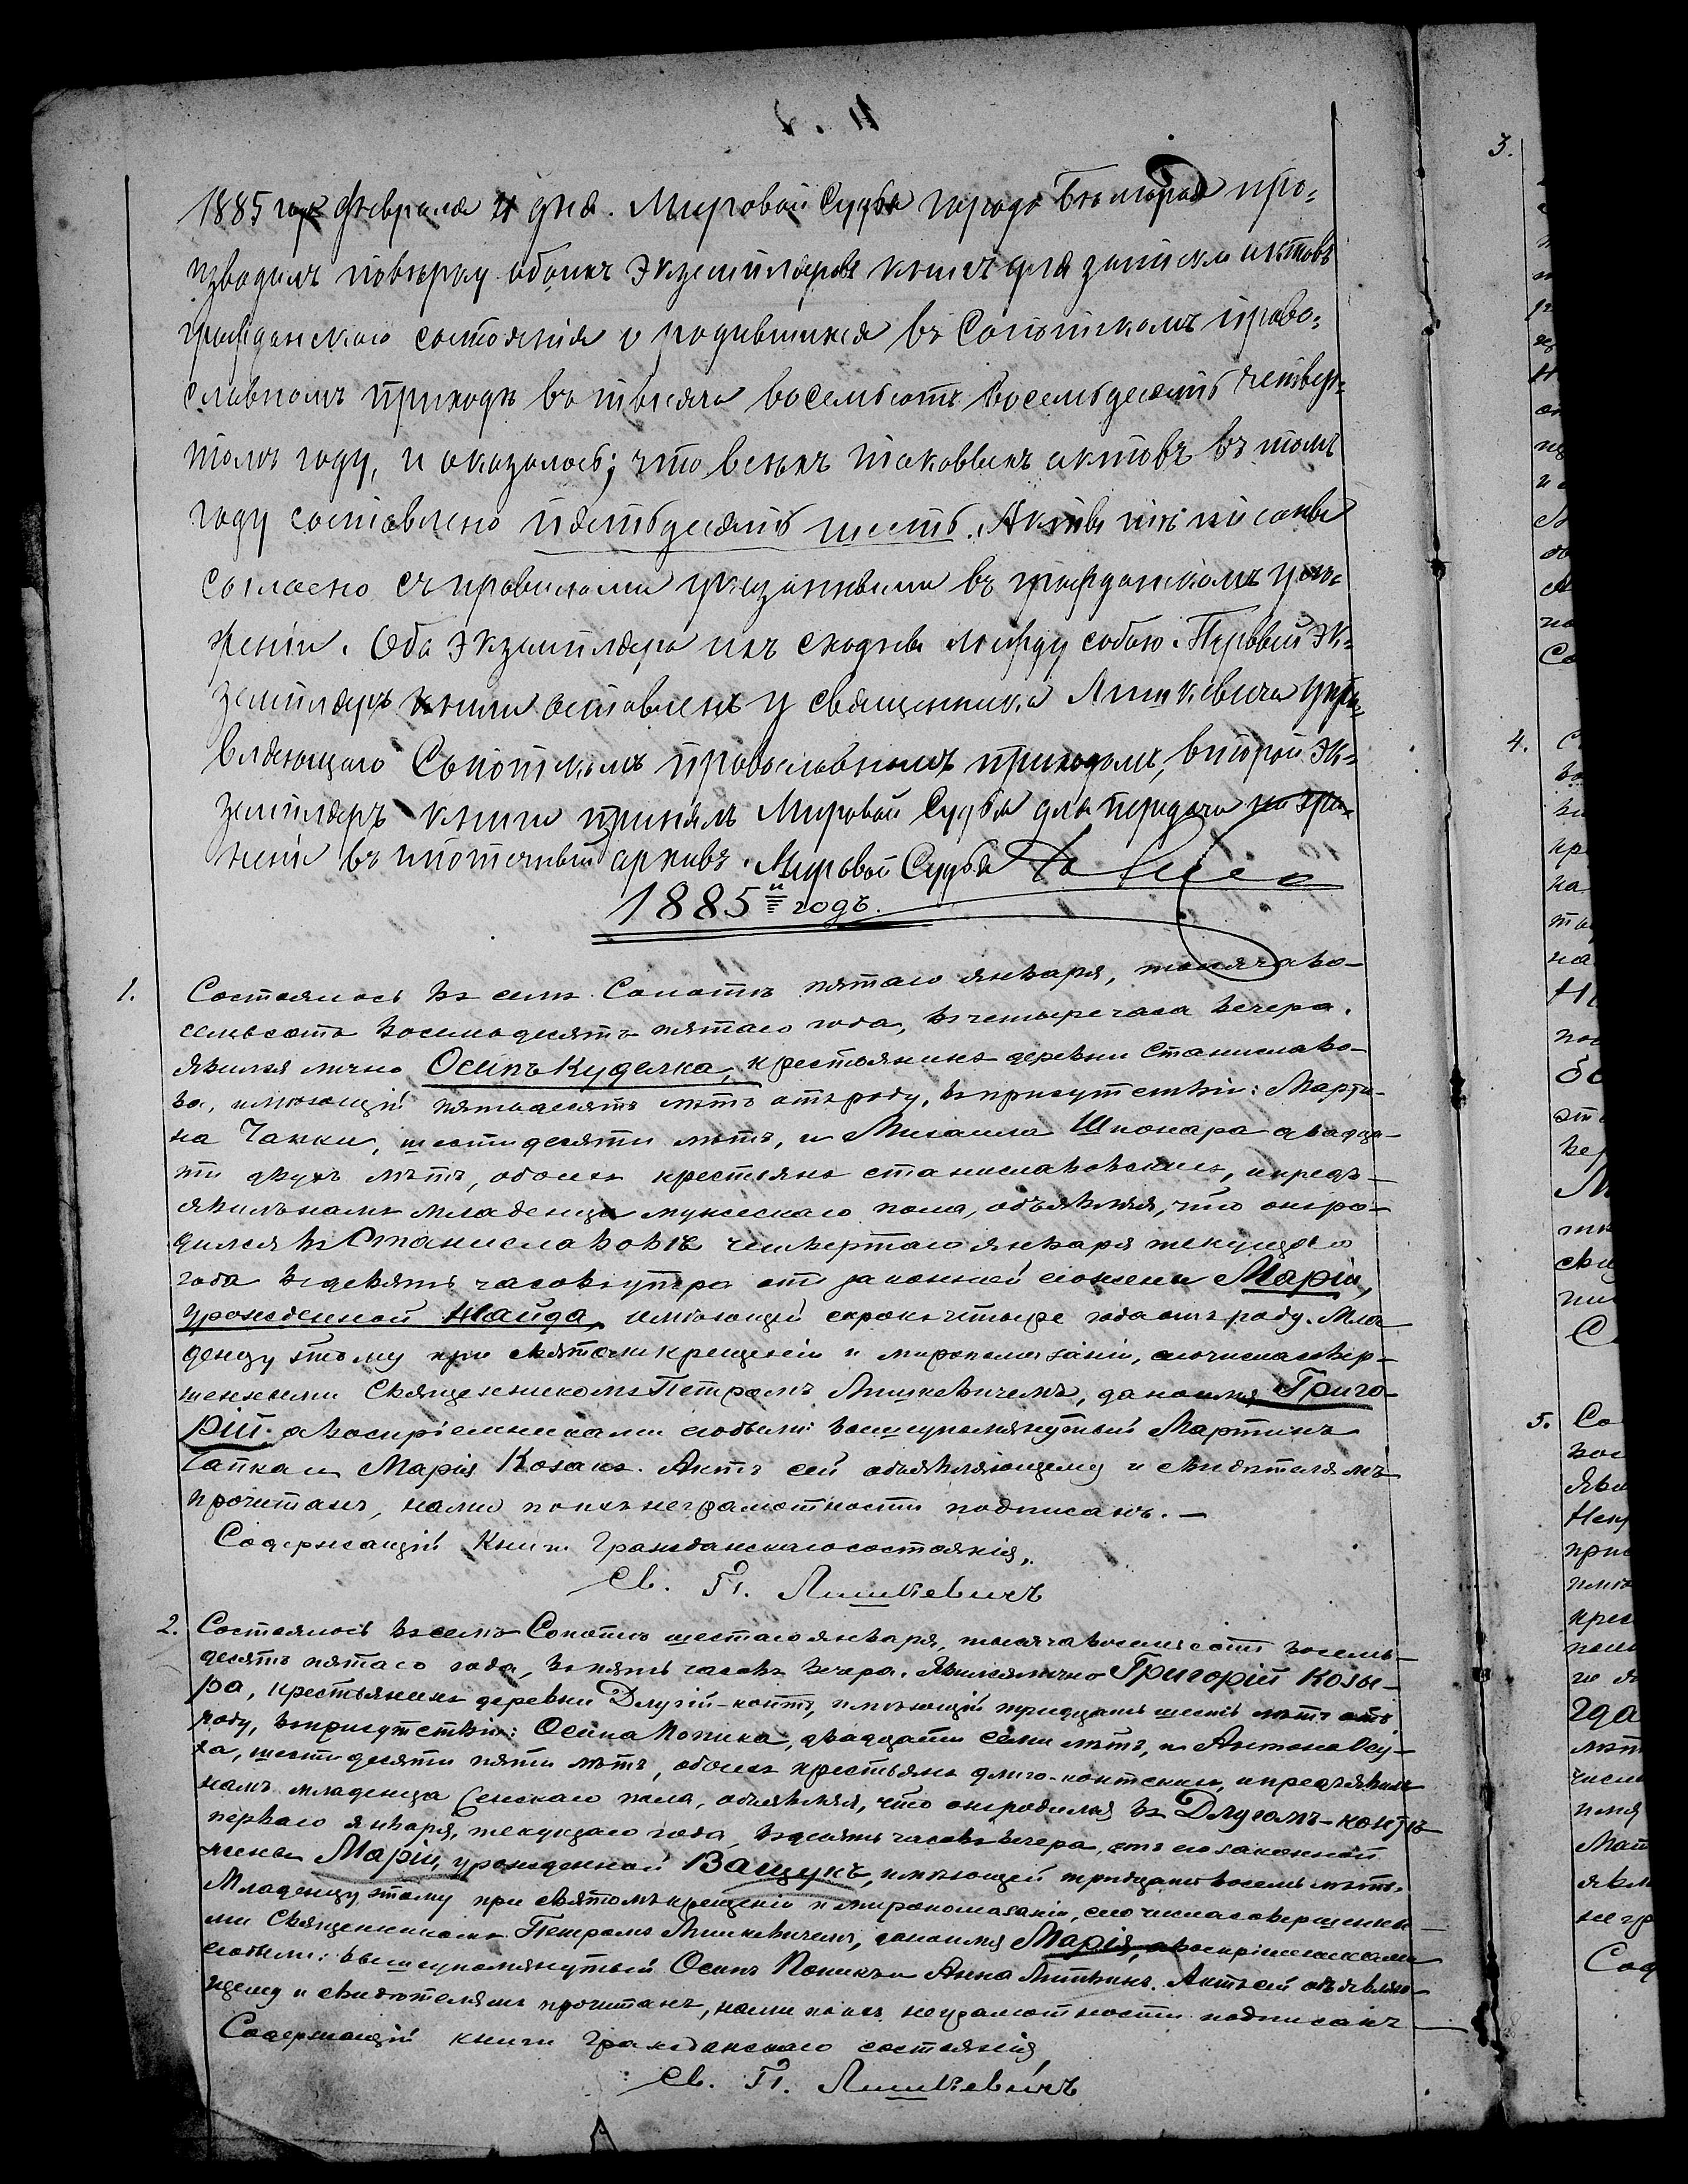 1885 года Февраля 4 дня. Мировой Судья города Бѣлгорая про-
изводилъ повѣрку обоихъ экземпляровъ книгъ для записки актовъ
гражданскаго состоянія о родившихся въ Сопотскомъ право-
славномъ приходѣ въ тысяча восемьсотъ восемьдесятъ четвер-
томъ году, и оказалось; что всѣхъ таковыхъ актовъ въ томъ
году составлено пятьдесятъ шесть. Акты писаны
согласно съ правилами указанными въ гражданскомъ уло-
женіи. Оба экземпляра ихъ сходны между собою. Первый эк-
земпляръ книги оставленъ у священника Лишкевича упра-
вляющаго Сопотскимъ православнымъ приходомъ, второй эк-
земпляръ книги принялъ Мировой Судья для передачи на хра-
неніе въ ипотечный архивъ. Мировой Судья
1885й годъ.
1. Состоялось въ селѣ Сопотѣ пятаго января, тысяча во-
семьсотъ восемьдесятъ пятаго года, въ четыре часа вечера.
Явился лично Осипъ Куделка, крестьянинъ деревни Станиславо-
ва, имѣющій пятьдесятъ лѣтъ отъ роду, въ присутствіи: Марти-
на Чапки, шестидесяти лѣтъ, и Михаила Шпонара двадца-
ти двухъ лѣтъ, обоихъ крестьянъ станиславовскихъ, и предъ-
явилъ намъ младенца мужескаго пола, объявляя, что онъ ро-
дился въ Станиславовѣ четвертаго января текущаго
года въ девять часовъ утра отъ законной его жены Маріи,
урожденной Найда, имѣющей сорокъ четыре года отъ роду. Мла-
денцу этому при святомъ крещеніи и миропомазаніи, сего числа совер-
шенными Священникомъ Петромъ Лишкевичемъ, дано имя Григо-
рій. а воспріемниками его были: вышеупомянутый Мартинъ
Чапка и Марія Козакъ. Актъ сей объявляющему и свидѣтелямъ
прочитанъ, нами по ихъ неграмотности подписанъ. —
Содержащій Книги Гражданскаго состоянія,
Св. П. Лишкевичъ
2. Состоялось въ селѣ Сопотѣ шестаго января, тысяча восемьсотъ восемь-
десятъ пятаго года, въ пять часовъ вечера. Явился лично Григорій Козы-
ра, крестьянинъ деревни Длугій-контъ, имѣющій тридцать шесть лѣтъ отъ
роду, въ присутствіи: Осипа Попика, двадцати семи лѣтъ, и Антона Осу-
ха, шестидесяти пяти лѣтъ, обоихъ крестьянъ длуго-контскихъ, и предъявилъ
намъ младенца женскаго пола, объявляя, что онъ родился въ Длугомъ-контѣ
перваго января, текущаго года, въ десять часовъ вечера, отъ его законной
жены Маріи, урожденной Ващукъ, имѣющей тридцать восемь лѣтъ.
Младенцу этому при святомъ крещеніи и миропомазаніи, сего числа совершенны-
ми Священникомъ Петромъ Лишкевичемъ, дано имя Марія, а воспріемниками
его были: вышеупомянутый Осипъ Попикъ и Анна Литвинъ. Актъ сей объявляю-
щему и свидѣтелямъ прочитанъ, нами по ихъ неграмотности подписанъ
Содержащій книги Гражданскаго состоянія
Св. П. Лишкевичъ
3.
4.
5.